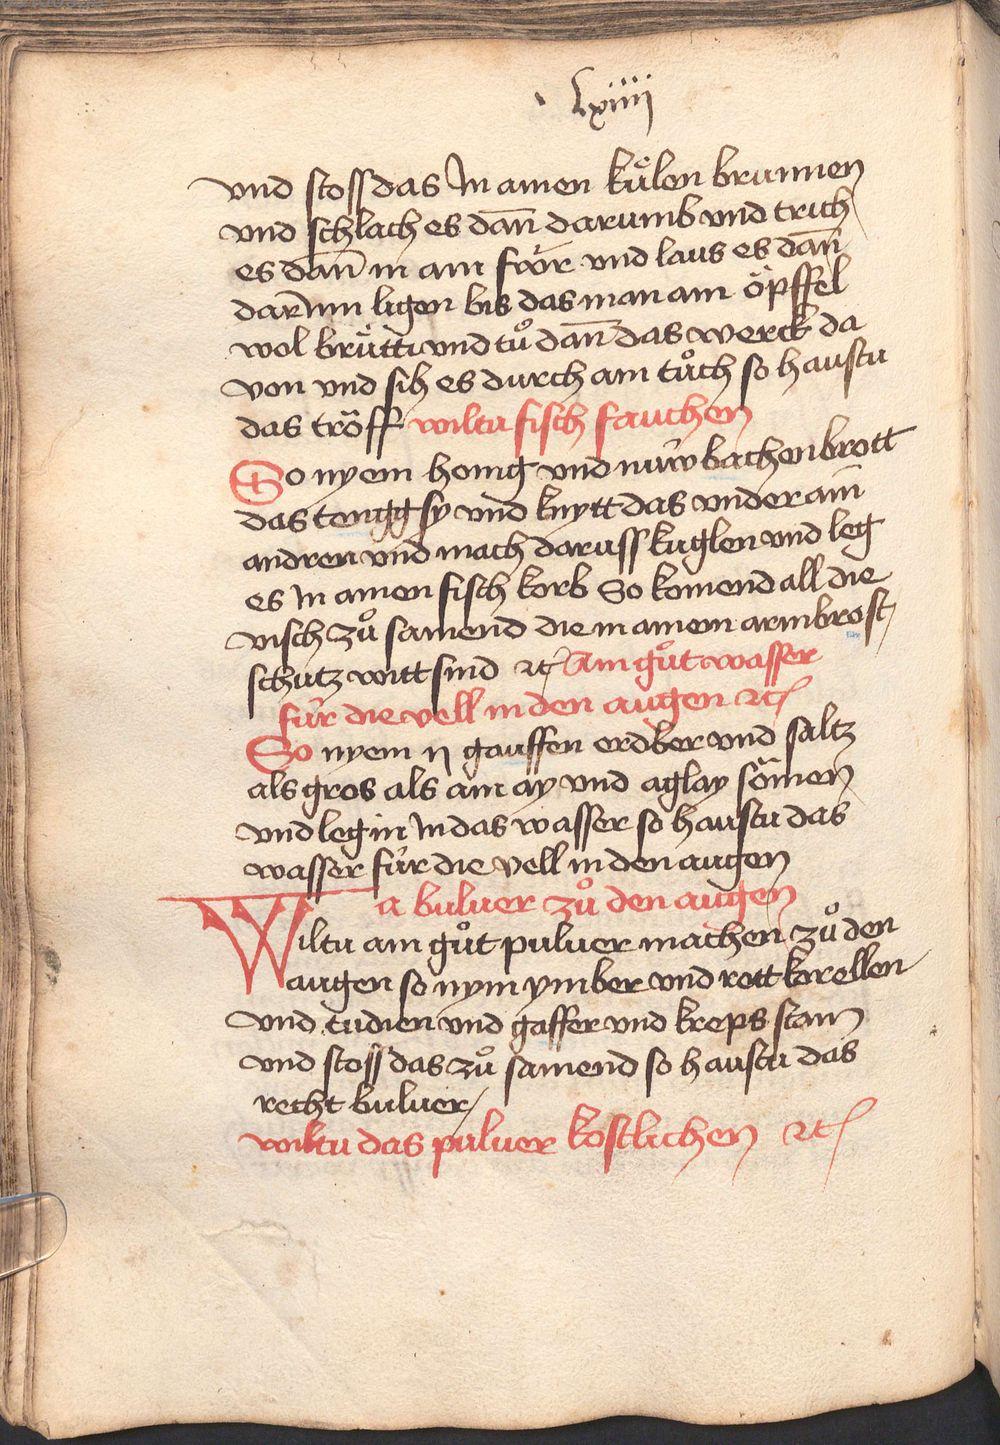 Lxiiij
vnd stoss das In ainen kuͤlen brunnen
vnd schlach es dan̄ darumb vnd trich
es dan̄ in ain für vnd laus es dan̄
darInn ligen bis das man ain öpffel
wol brütti vnd tuͦ dan̄ das werck da
von vnd sih es durch ain tuͦch so haustu
das tröff wiltu fisch fauchen
So nyem honig vnd nüw bachen brott
das tengg sy vnd knytt das vnder ain
andren vnd mach daruss kuglen vnd leg
es In ainen fisch korb So komend all die
visch zuͦ samend die in ainem armbrost
schutz witt sind ꝛc Ain guͦt wasser
für die vell in den augen ꝛc
So nyem ij gauffen erdber vnd saltz
als gros als ain ay vnd aglay sömen
vnd leg in In das wasser so haustu das
wasser für die vell in den augen
a buluer zuͦ den augen
Wiltu ain guͦt puluer machen zuͦ den
augen so nym ymber vnd rott korellen
vnd tudien vnd gaffer vnd kreps stain
vnd stoss das zuͦ samend so haustu das
recht buluer
wiltu das puluer kostlichen ꝛc